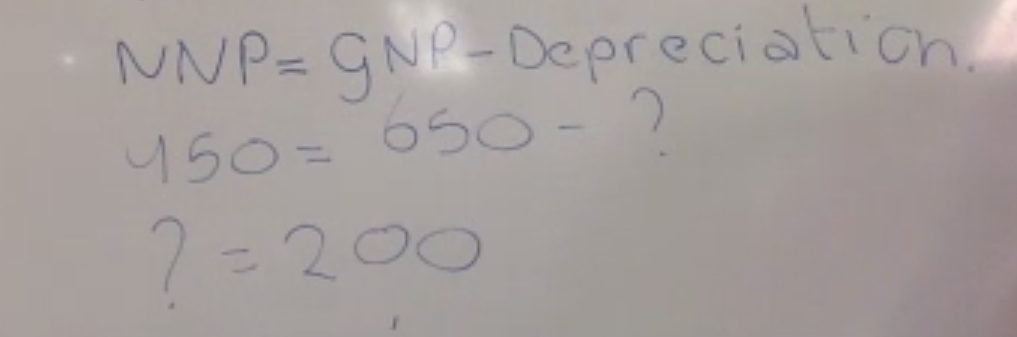 NNP = GNP - Depreciation.
450 = 650 - ?
? = 200